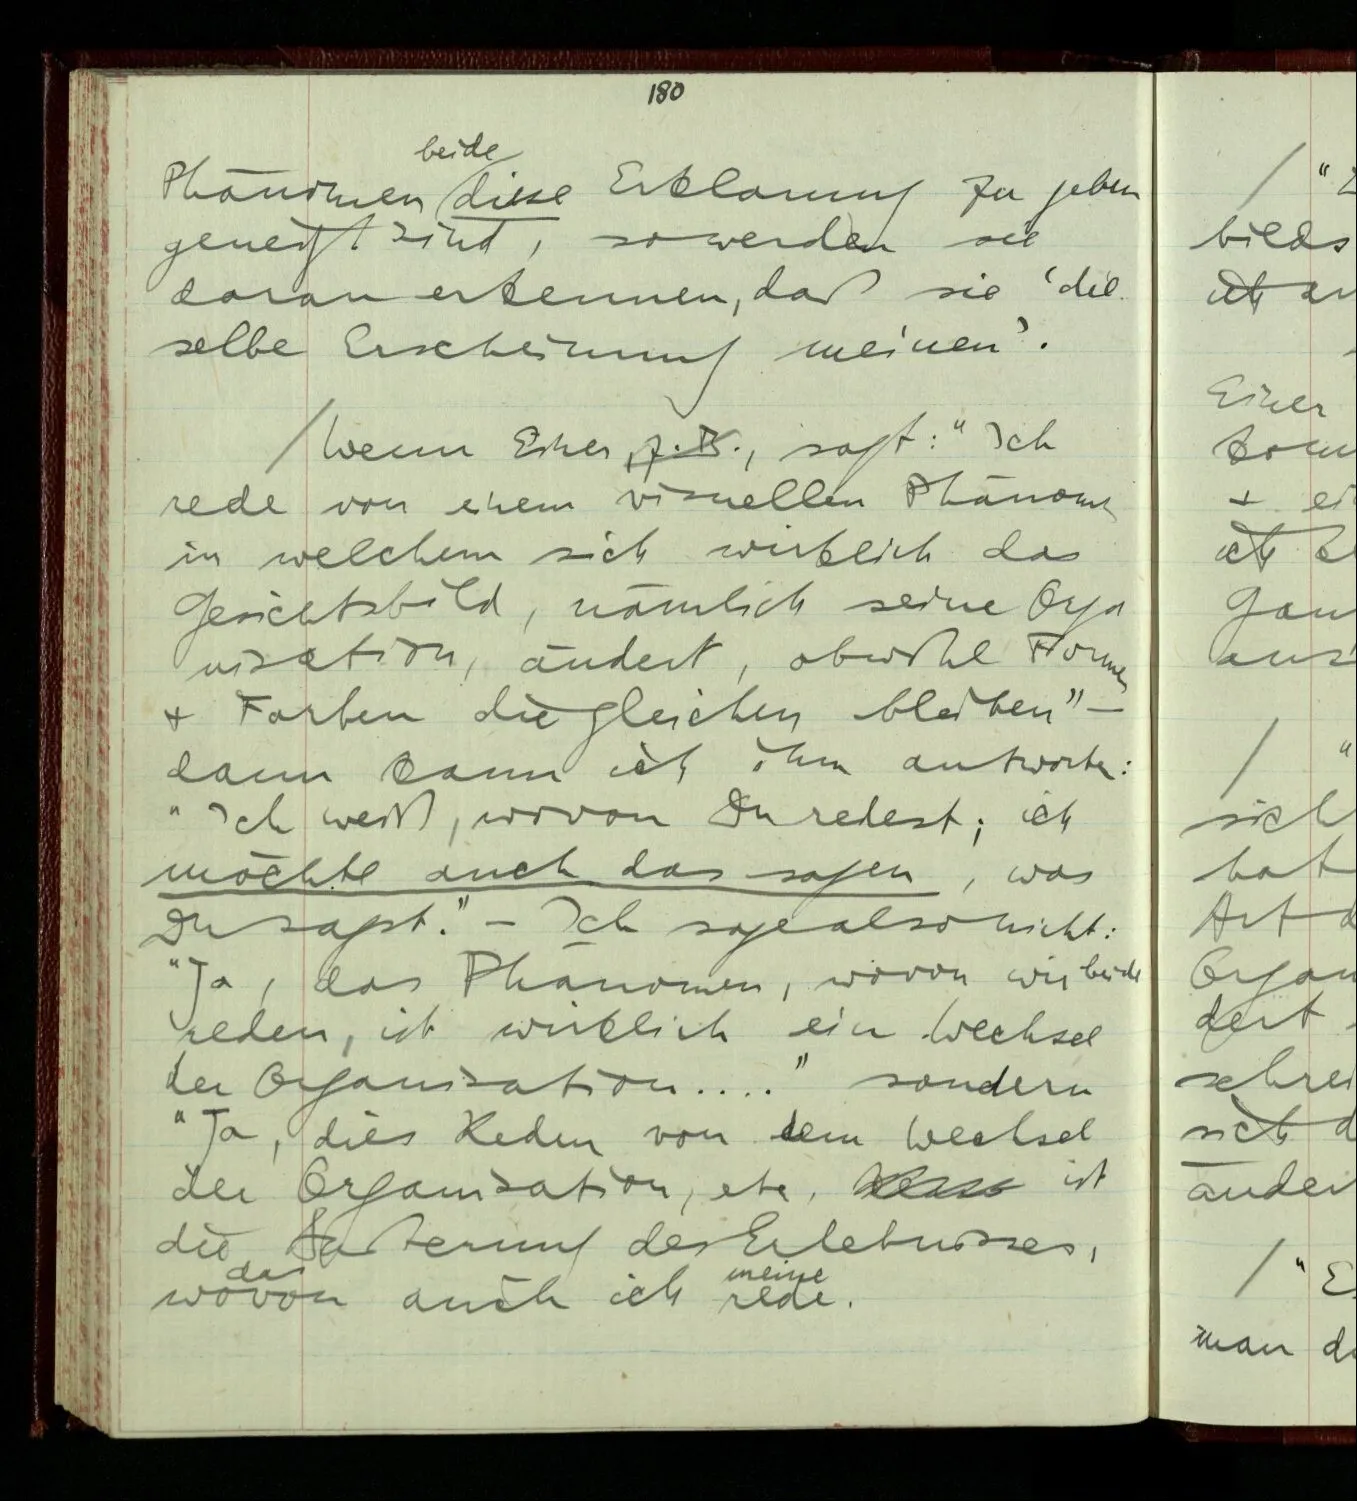 180
beide
Phänomen diese Erklärung zu geben
geneigt sind, so werden sie
daran erkennen, daß sie 'die
selbe Erscheinung meinen'.
/ Wenn Einer, z.B., sagt: "Ich
rede von einem visuellen Phänomen
in welchem sich wirklich das
Gesichtsbild, nämlich seine Orga
nisation, ändert, obwohl Formen
+ Farben die gleichen bleiben" –
dann kann ich ihm antworten:
"Ich weiß, wovon Du redest; ich
möchte auch das sagen, was
Du sagst." – Ich sage also nicht:
"Ja, das Phänomen, wovon wir beide
reden, ist wirklich ein Wechsel
der Organisation...." sondern
"Ja, dies Reden von dem Wechsel
der Organisation, etc, ist
die Äußerung des Erlebnisses,
das meine
wovon auch ich rede.
/ "
bilds
Einer
+
/ "
sich
hat
Art d
Organ
dert
schrei
sich d
änder
/ "E
man d